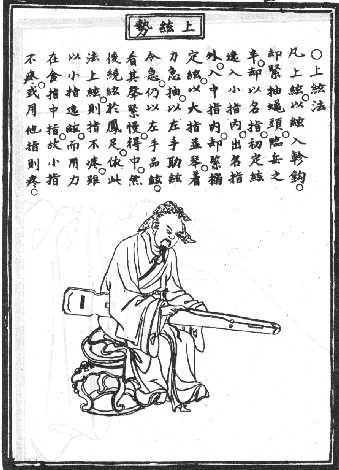 上絃勢
〇上絃法
凡上絃。以絃入軫鈎。
却緊抽蠅頭。臨岳之
却以名指。初定絃
遶入小指內。出名指
外。入中指內。却緊搦
定絃。以大指並琴。着
力急抽。以左手助絃
令急。仍以左手品絃。
看其聲緊慢。得中。然
後繞絃於鳳足。依此
法上絃。則指不疼。雖
以小指遶絃。而用力
在食指中指。故小指
不疼。或用他指則疼。